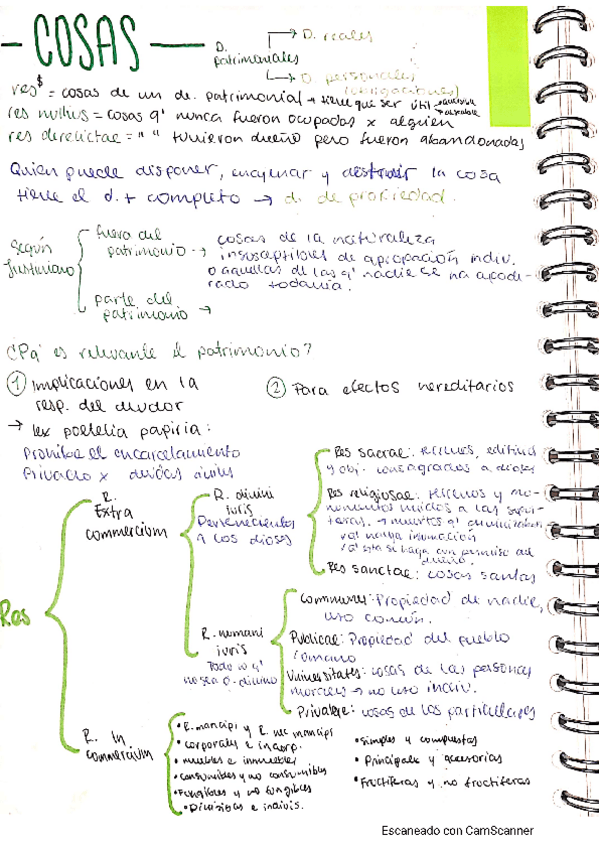 - COSAS -
D. patrimoniales
D. reales
D. personales
(obligaciones)
res$ = cosas de un de. patrimonial → tiene que ser útil
res nullius = cosas q' nunca fueron ocupadas x alguien
res derelictae = " " tuvieron dueño pero fueron abandonadas
Quien puede disponer, enajenar y destruir la cosa
tiene el d. + completo → d. de propiedad.
Según Justiniano
fuera del patrimonio →
cosas de la naturaleza
insoseptibles de apropación indiv.
o aquellas de las q' nadie se ha apode-
rado todavía.
parte del patrimonio →
¿Pa' es relevante el patrimonio?
① Implicaciones en la
resp. del deudor
② Para efectos hereditarios
→ lex poetelia papiria:
Prohibe el encarcelamiento
Privado x deudas civiles
Res
R. Extra commercium
R. divini iuris
Pertenecientes
a los dioses
Res sacrae: terrenos,
y obj. consagrados a dioses
Res religiosae: terrenos y mo-
numentos unidos a las sepul-
turas. → muertos q'
haya inhumación
se haga con permiso del
dueño.
Res sanctae: cosas santas
R. humani iuris
Todo lo q'
no sea d. divino
Communes: Propiedad de nadie,
uso común.
Publicae: Propiedad del pueblo
romano
Universitates: cosas de las personas
morales → no uso indiv.
Privatae: cosas de los particulares
R. In commercium
• R. mancipi y R. nec mancipi
• corporales e incorp.
• muebles e inmuebles
• consumibles y no consumibles
• Fungibles y no fungibles
• Divisibles e indivis.
• simples y compuestas
• Principales y accesorias
• Fructíferas y no fructíferas
Escaneado con CamScanner